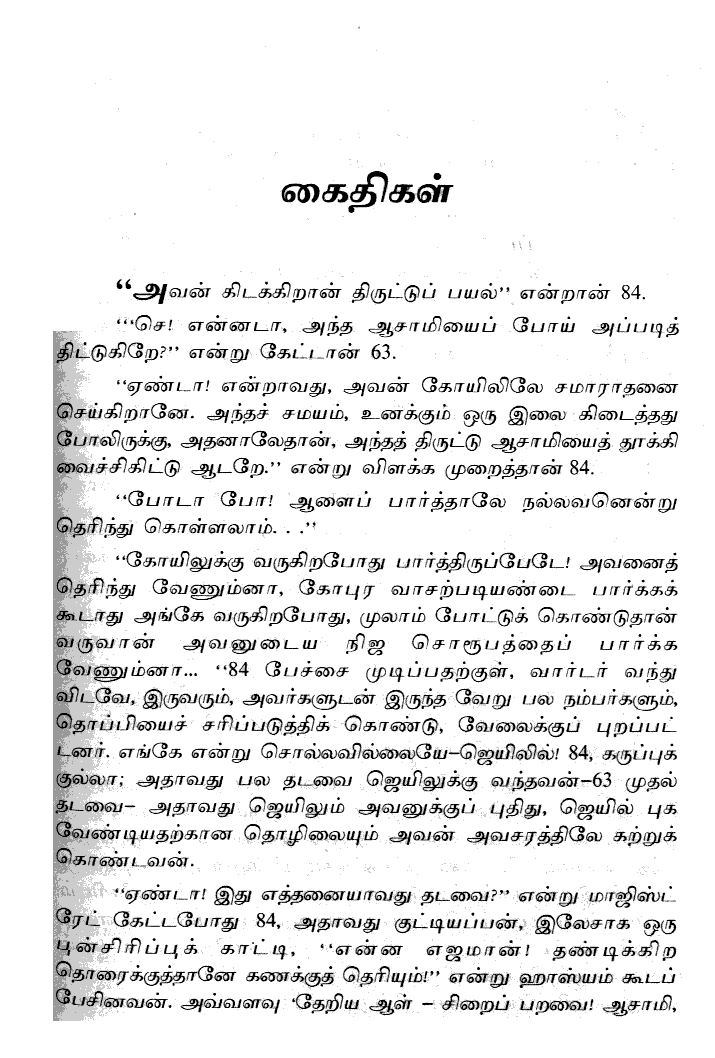 கைதிகள்
“அவன் கிடக்கிறான் திருட்டுப் பயல்’’ என்றான் 84.
“‘செ! என்னடா, அந்த ஆசாமியைப் போய் அப்படித்
திட்டுகிறே?’’ என்று கேட்டான் 63.
‘‘ஏண்டா! என்றாவது, அவன் கோயிலிலே சமாராதனை
செய்கிறானே. அந்தச் சமயம், உனக்கும் ஒரு இலை கிடைத்தது
போலிருக்கு, அதனாலேதான், அந்தத் திருட்டு ஆசாமியைத் தூக்கி
வைச்சிகிட்டு ஆடறே.’’ என்று விளக்க முறைத்தான் 84.
‘‘போடா போ! ஆளைப் பார்த்தாலே நல்லவனென்று
தெரிந்து கொள்ளலாம். . .’’
‘‘கோயிலுக்கு வருகிறபோது பார்த்திருப்பேடே! அவனைத்
தெரிந்து வேணும்னா, கோபுர வாசற்படியண்டை பார்க்கக்
கூடாது அங்கே வருகிறபோது, முலாம் போட்டுக் கொண்டுதான்
வருவான் அவனுடைய நிஜ சொரூபத்தைப் பார்க்க
வேணும்னா... ‘‘84 பேச்சை முடிப்பதற்குள், வார்டர் வந்து
விடவே, இருவரும், அவர்களுடன் இருந்த வேறு பல நம்பர்களும்,
தொப்பியைச் சரிப்படுத்திக் கொண்டு, வேலைக்குப் புறப்பட்
டனர். எங்கே என்று சொல்லவில்லையே–ஜெயிலில்! 84, கருப்புக்
குல்லா; அதாவது பல தடவை ஜெயிலுக்கு வந்தவன்–63 முதல்
தடவை– அதாவது ஜெயிலும் அவனுக்குப் புதிது, ஜெயில் புக
வேண்டியதற்கான தொழிலையும் அவன் அவசரத்திலே கற்றுக்
கொண்டவன்.
‘‘ஏண்டா! இது எத்தனையாவது தடவை?’’ என்று மாஜிஸ்ட்
ரேட் கேட்டபோது 84, அதாவது குட்டியப்பன், இலேசாக ஒரு
புன்சிரிப்புக் காட்டி, ‘‘என்ன எஜமான்! தண்டிக்கிற
தொரைக்குத்தானே கணக்குத் தெரியும்!’’ என்று ஹாஸ்யம் கூடப்
பேசினவன். அவ்வளவு ‘தேறிய ஆள் – சிறைப் பறவை! ஆசாமி,